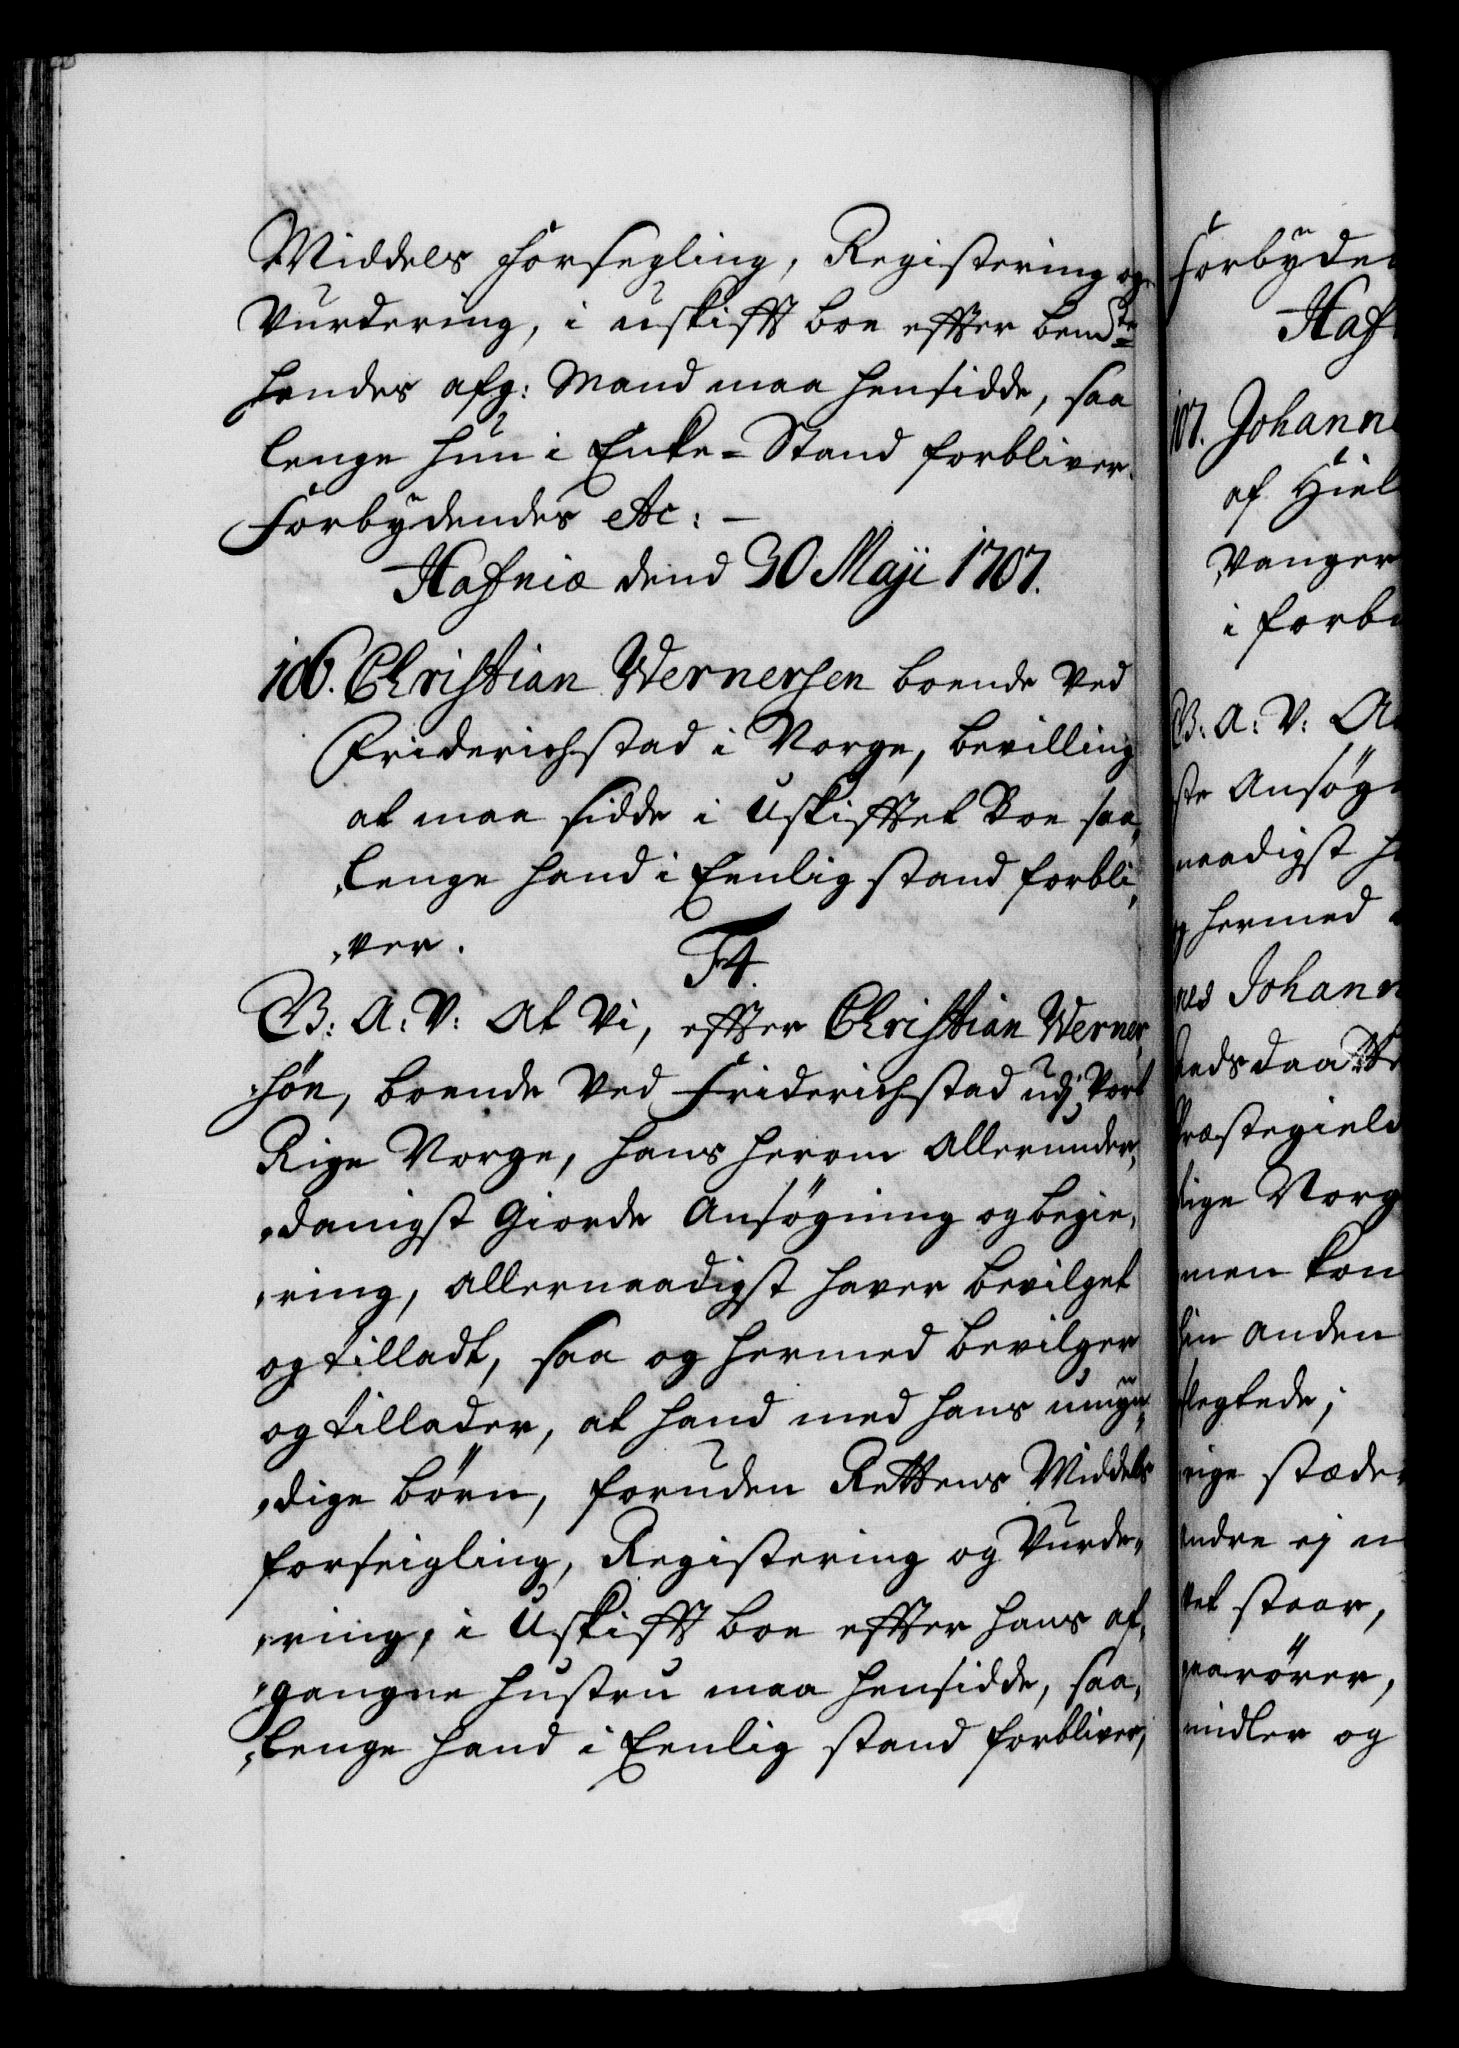 Middels Forsegling, Registering og
Vurdering, i uskifft boe effter bemdte
hendes afg: Mand maa hensidde, saa
lenge hun i Enke-Stand forbliver.
Forbydendes etc: —
Hafniæ dend 30 Maji 1707.
106. Christian Wernersen boende ved
Friderichstad i Norge, bevilling
at maa sidde i Uskifftet Boe saa„
„lenge hand i Eenlig stand forbli„
„ver.
F4.
G: A: V: At Vi, effter Christian Werner„
„søn, boende ved Friderichstad udj Vort
Rige Norge, hans herom allerunder„
„danigst giorde Ansøgning og begie„
„ring, allernaadigst haver bevilget
og tilladt, saa og hermed bevilger
og tillader, at hand med hans umyn„
„dige børn, foruden Rettens Middels
forseigling, Registering og Vurde„
„ring, i Uskifft boe effter hans af„
„gangne hustru maa hensidde, saa„
„lenge hand i Eenlig stand forbliver,
Forbyden
Haf
107. Johann
af Hiel
Vanger
i forb
G: A: V: A
ste Ansøg
naadigst h
og hermed
Johann
Præstegield
Rige Norg
men kon
sin anden
slegtede;
rige stæder
andre ej
tet staar,
paarører,
midler og